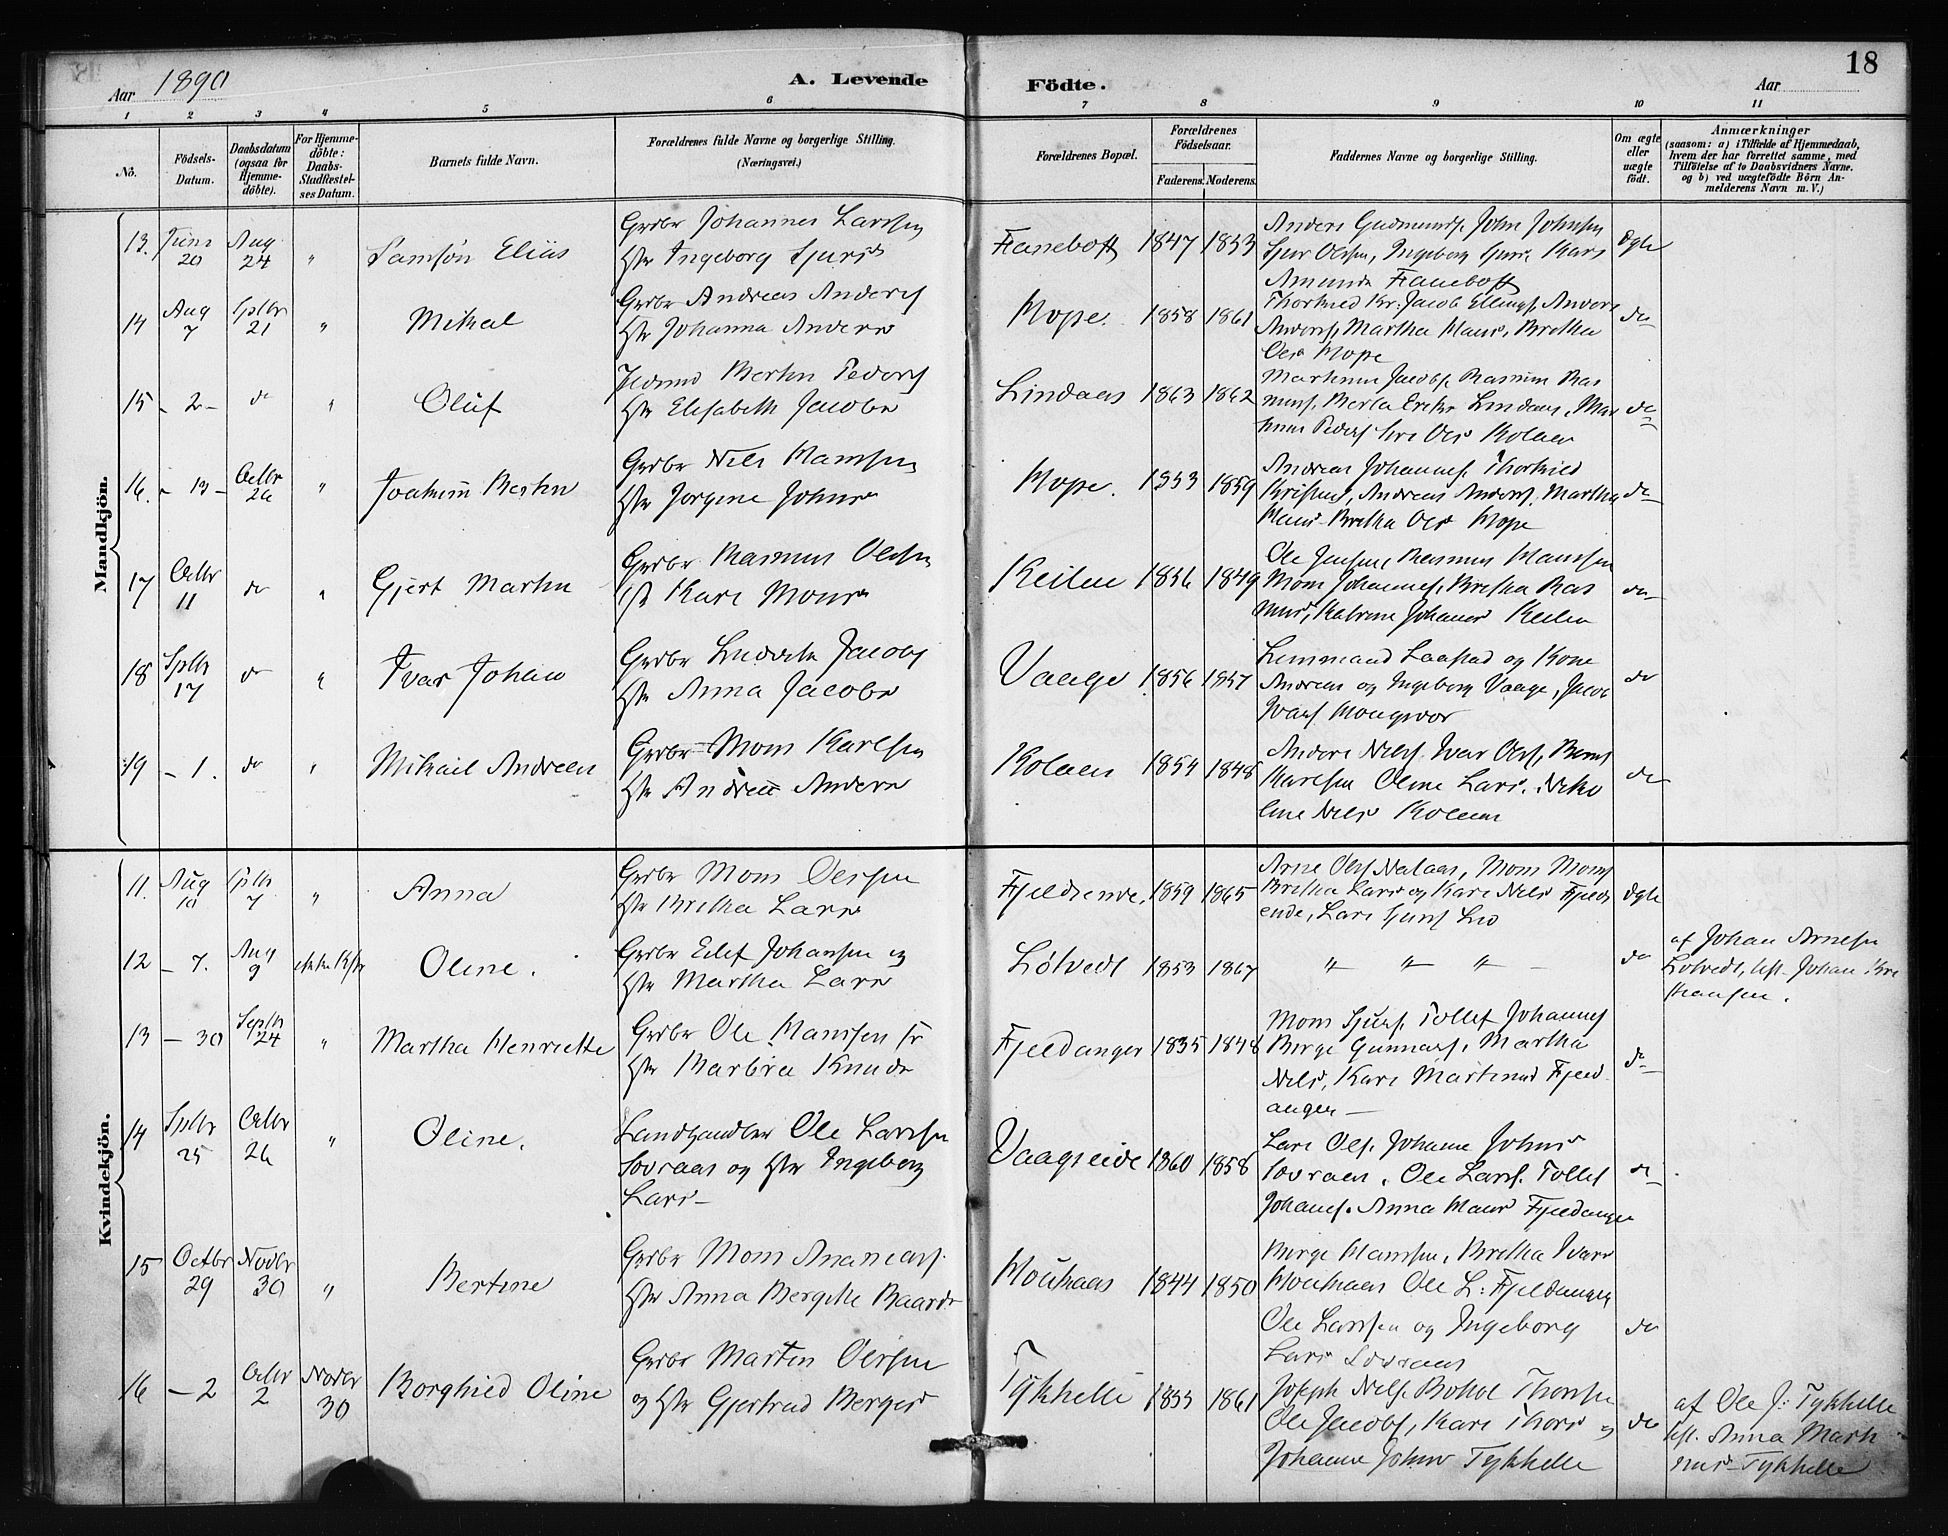 18
Aar 1890
A. Levende Födte.
Aar
1 2 3 4 5 6 7 8 9 10 11
No.
Födsels-Datum.
Daabsdatum (ogsaa for Hjemme-döbte).
For Hjemme-döbte: Daabs-Stadfæstel-ses Datum.
Barnets fulde Navn.
Forældrenes fulde Navne og borgerlige Stilling.
(Næringsvei.)
Forældrenes Bopæl.
Forældrenes Födselsaar.
Faderens. Moderens.
Faddernes Navne og borgerlige Stilling.
Om ægte eller uægte födt.
Anmærkninger
(saasom: a) i Tilfælde af Hjemmedaab, hvem der har forrettet samme, med Tilföielse af to Daabsvidners Navne. og b) ved uægtefödte Börn An-melderens Navn m. V.)
Mandkjön.
13. Juni 20 Aug 24 " Samson Elias
Grdbr Johannes Larssen
Hstr Ingeborg Sjursd
Faneboft 1847 1853
Anders Gudmunds. John Johnsen
Sjur Olssen, Ingeborg Sjurs Kari
Amunds Faneboft
Ægte
14 Aug 7 Sptbr 21 " Mikal
Grdbr Andreas Anders
Hstr Johanna Anders
Hope. 1858 1861
Thorkild Kr. Jacob Ellings, Anders
Anders, Martha Hans, Brithe
Ols Hope
do
15 - 2 - do " Oluf
Berthn Peders
Hstr Elisabeth Jacobs
Lindaas 1863 1862
Markus Jacobs. Rasmus Ras
mus. Berta Eriks Lindaas, Mar
Peders Ols Kolaas
do
16. - 13 - Octbr 26 " Joakim Berthn
Grdbr Nils Hanssen
Hstr Jorgine Johns
Hope. 1853 1859
Andreas Johannes. Thorkild
Kristens, Andreas Anders, Martha
Hans Britha Ols Hope
do
17 Octbr 11 do " Gjert Martin
Grdbr Rasmus Olssen
Kari Mons
Keilen 1856 1849
Ole Jenssen, Rasmus Hanssen
Mons Johannes, Britha Ras
mus, Katrine Johannes Keilen
do
18 Sptbr 17 do " Ivar Johan
Grdbr Ludvik Jacobs
Hstr Anna Jacobs
Vaage 1856 1857
Lensmand Laastad og Kone
Andreas og Ingeborg Vaage, Jacob
Ivars Mongvor
do
19 - 1. do " Mikail Andreas
Grdbr Mons Karlsen
Hstr Andrea Anders
Kolaas 1854 1848
Anders Nils, Ivar Ols, Berns
Karlsen Oline Lars, Niko
line Nils Kolaas
do
Kvindekjön.
11. Aug 10 Sptb 7 " Anna
Grdbr Mons Olssen
Hstr Britha Lars
Fjeldsende. 1859 1865
Arne Ols Natlaas, Mons Mons
Britha Lars og Kari Nils Fjelds
ende, Lars Sjurs Lid
Ægte
12 - 7. Aug 9 Oline.
Grdbr Edef Johansen og
Hstr Martha Lars
Lotvedt 1853 1867 " " " -
do
af Johan Arnesen
Lotvedt, test. Johan Kri
stiansen.
13 - 30 Septb 24 " Martha Henriette
Grdbr Ole Hanssen
Hstr Barbra Knuds
Fjeldanger 1835 1848
Mons Sjurs. Tollef Johannes
Birge Gunnars, Martha
Nils, Kari Martinus Fjeld
anger —
do
14 Sptbr 25 Octbr 26 " Oline.
Landhandler Ole Larssen
Sovraas og Hstr Ingeborg
Lars —
Vaagseide 1860 1858
Lars Ols. Johanne Johns
Sovraas. Ole Lars. Tollef
Johans. Anna Hans Fjeldanger
do
15 Octbr 29 Novbr 30 " Bertine
Grdbr Mons Ananias.
Hstr Anna Bergitte Baards
Houkaas 1844 1850
Birge Hanssen, Britha Ivars
Houkaas Ole L. Fjeldanger
Ole Larssen og Ingeborg
Lars Sovraas
do
16 - 2 Octbr 2 Novbr 30 Borghild Oline
Grdbr Martin Olssen
og Hstr Gjertrud Berges
Tykhelle 1855 1861
Joseph Nils. Thorssen
Ole Jacobs, Kari Thors og
Johanne Johns Tykhelle
do
af Ole J. Tykhelle
test. Anna Marti
nus Tykhelle